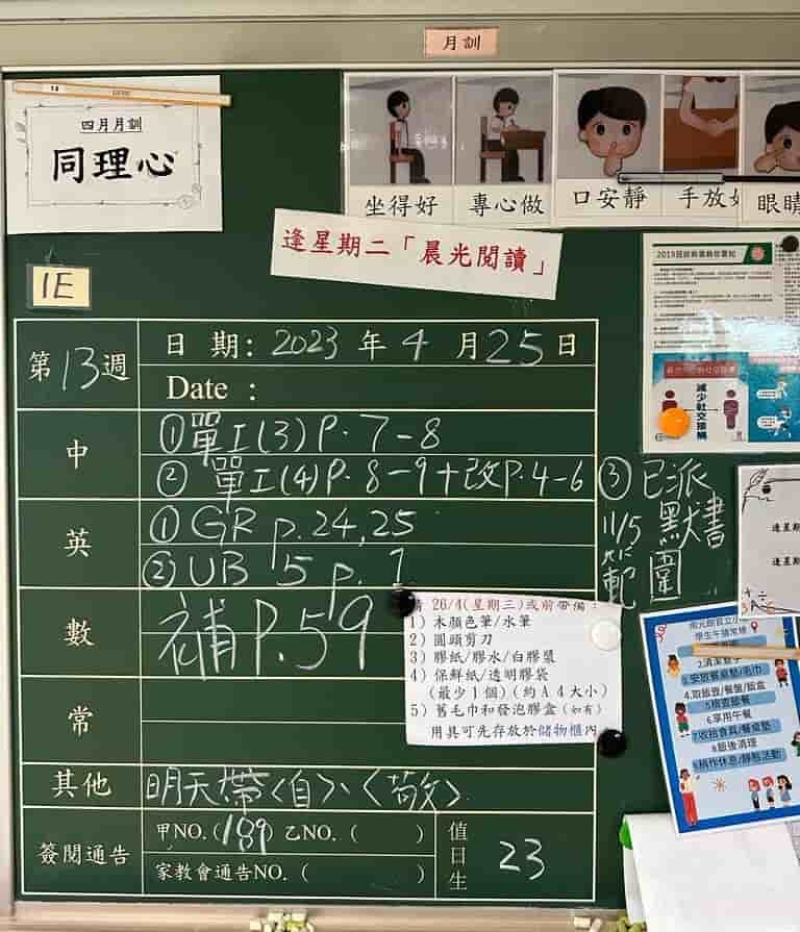 月訓
四月月訓
同理心
坐得好
專心做
口安靜
手放
眼睛
逢星期二「晨光閱讀」
1E
2019冠狀病毒病
減少社交接觸
第13週
日期: 2023 年 4 月 25 日
Date :
中
①單工(3) P. 7-8
② 單工(4) P. 8-9+改P. 4-6
③ 已派
默書
範圍
11/5
英
① GR p. 24, 25
② UB 5 p. 1
數
補 P. 59
26/4(星期三)或前帶備:
1) 木顏色筆/水筆
2) 圓頭剪刀
3) 膠紙/膠水/白膠漿
4) 保鮮紙/透明膠袋
(最少1個)(約A4大小)
5) 舊毛巾和發泡膠盒(如有)
用具可先存放於儲物櫃內
逢星期
逢星期
學生午膳常規
2.清潔
3.安放餐桌墊/毛巾
4.取飯壺/餐盤/飯盒
5.檢查飯餐
6.享用午餐
7.收拾食具/餐桌墊
8.飯後清理
9.稍作休息/靜態活動
常
其他
明天帶〈自〉、〈敬〉
簽閱通告
甲NO. (189) 乙NO. ( )
家教會通告NO. ( )
值日生
23